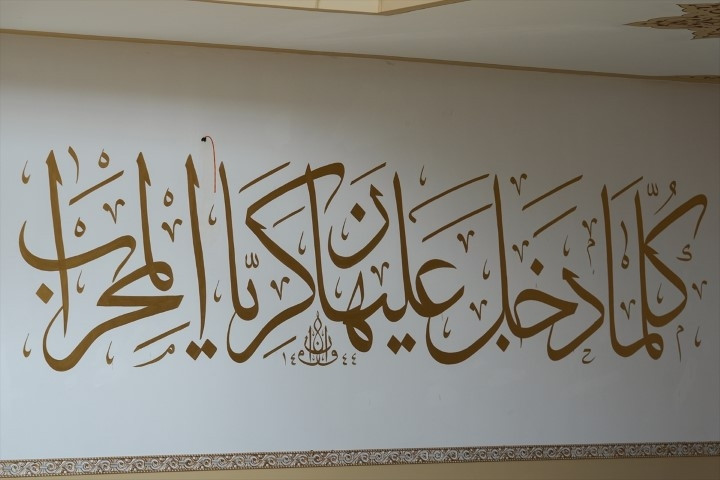 كلما دخل عليها زكريا المحراب
١٤٤٤